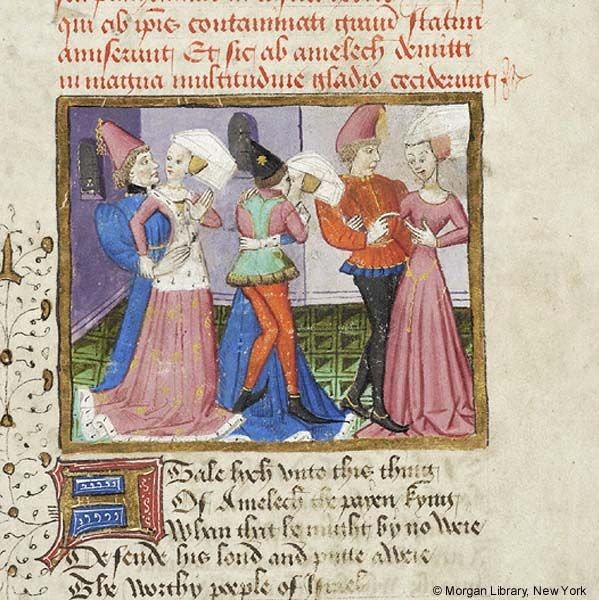 qui ab ipīs contaminati statim
amiserunt Et sic ab amelech deuicti
in magna multitudine gladio ceciderunt
A Tale lich vnto this thing
Of Amelech the payen kyng
Whan that he might by no weie
Defende his lond and putte aweie
The worthy poeple of Israel
© Morgan Library, New York